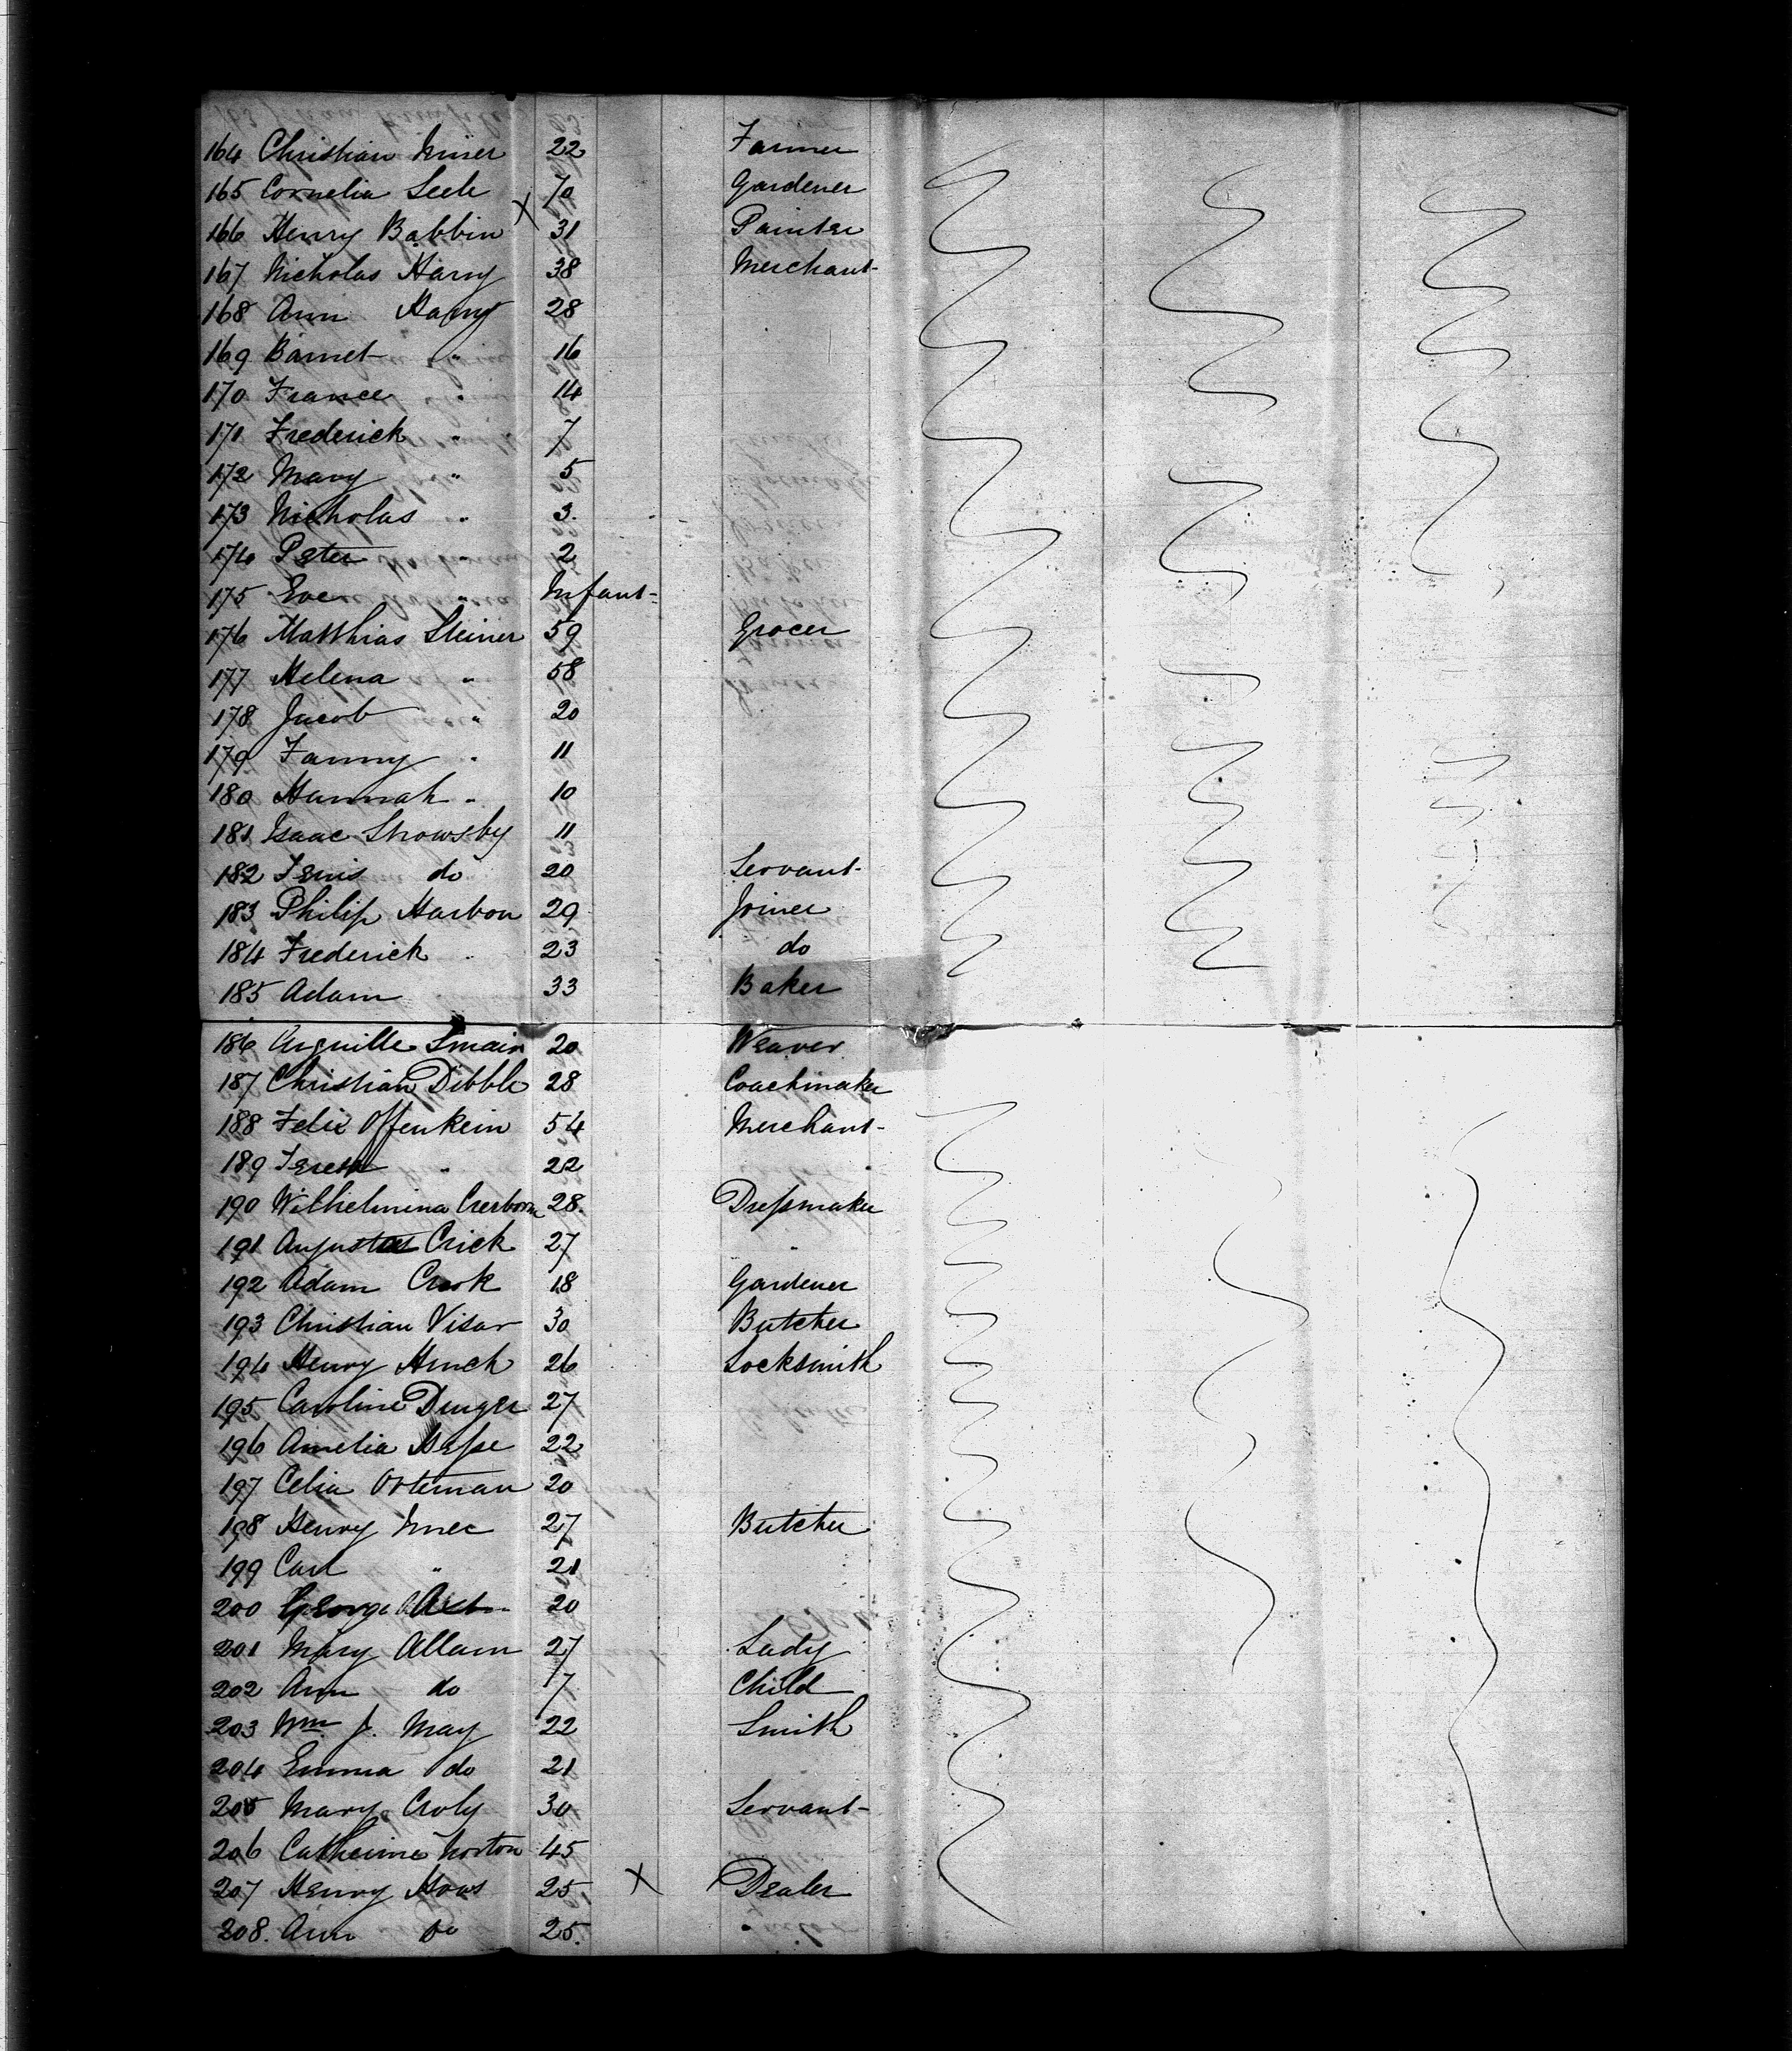 164 Christian Imier 22 Farmer
165 Cornelia Seele 70 Gardener
166 Henry Babbin X 31 Painter
167 Nicholas Harry 38 Merchant
168 Ann Harry 28
169 Barnet " 16
170 France " 14
171 Frederick " 7
172 Mary " 5
173 Nicholas " 3.
174 Peter " 2
175 Eve " Infant
176 Matthias Steiner 59 Grocer
177 Helena " 58
178 Jacob " 20
179 Fanny " 11
180 Hannah " 10
181 Isaac Showsby 11
182 do 20 Servant
183 Philip Harbon 29 Joiner
184 Frederick " 23 do
185 Adam 33 Baker
186 20 Weaver
187 Christian Dibble 28 Coachmaker
188 Felix Offenkein 54 Merchant
189 " 22
190 Wilhelmina 28. Dressmaker
191 Crick 27 "
192 Adam Crook 18 Gardener
193 Christian Visar 30 Butcher
194 Henry Hinch 26 Locksmith
195 Caroline Dunger 27
196 Amelia Hesse 22
197 Celia Orteman 20
198 Henry Imec 27 Butcher
199 Carl " 21
200 George 20
201 Mary Allam 27 Lady
202 Ann do 7 Child
203 Wm J. May 22 Smith
204 Emma do 21
205 Mary Croly 30 Servant
206 Catherine Norton 45
207 Henry Hows 25 X Dealer
208. Ann Do 25.